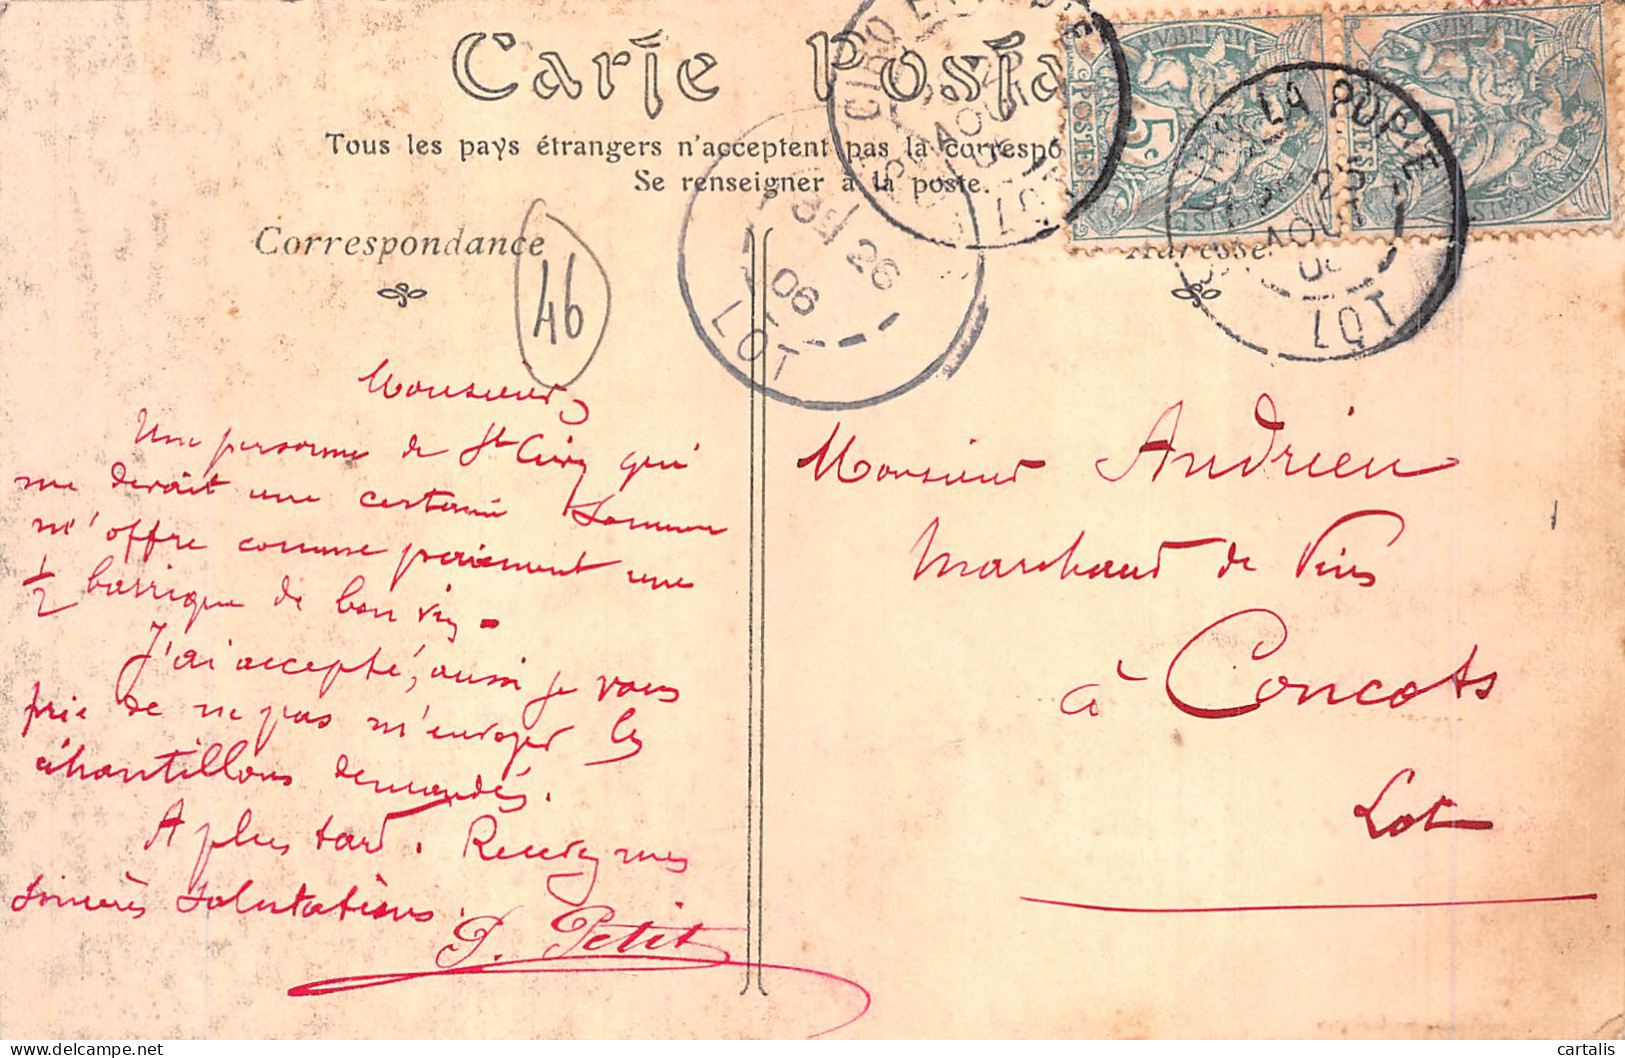 Carte Posta
Tous les pays étrangers n'acceptent pas la correspo
Se renseigner à la poste.
Correspondance
Adresse
46
5c
POSTES
LA POPIE
25
AOUT
06
LOT
26
06
LOT
AOUT
LOT
Monsieur,
Une personne de St Cirq qui
me devait une certaine somme
m'offre comme paiement une
1/2 barrique de bon vin.
J'ai accepté, aussi je vous
prie de ne pas m'envoyer les
échantillons demandés.
A plus tard. Recevez mes
sincères salutations.
P. Petit
Monsieur Andrieu
Marchand de Vins
à Concots
Lot
cartalis